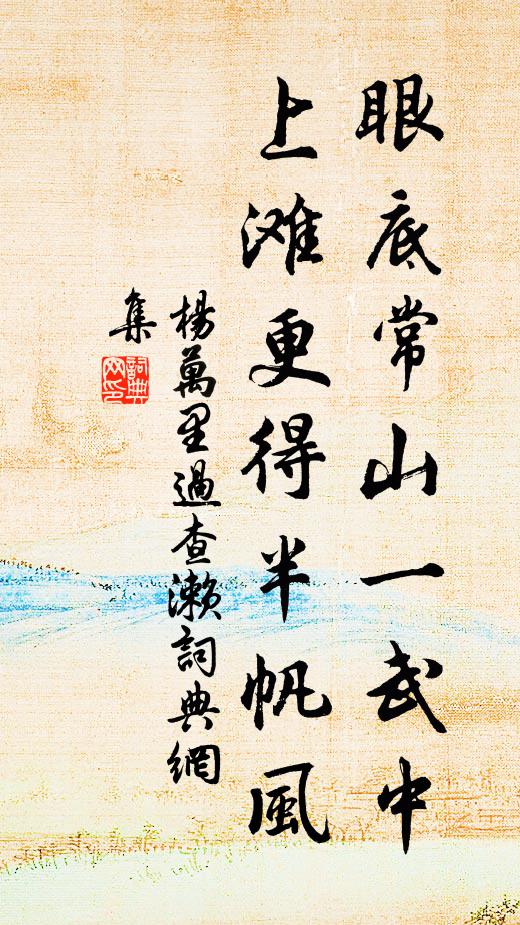 眼底常山一武中
上滩更得半帆風
楊萬里過查瀨詞典網
集
詞典
网印